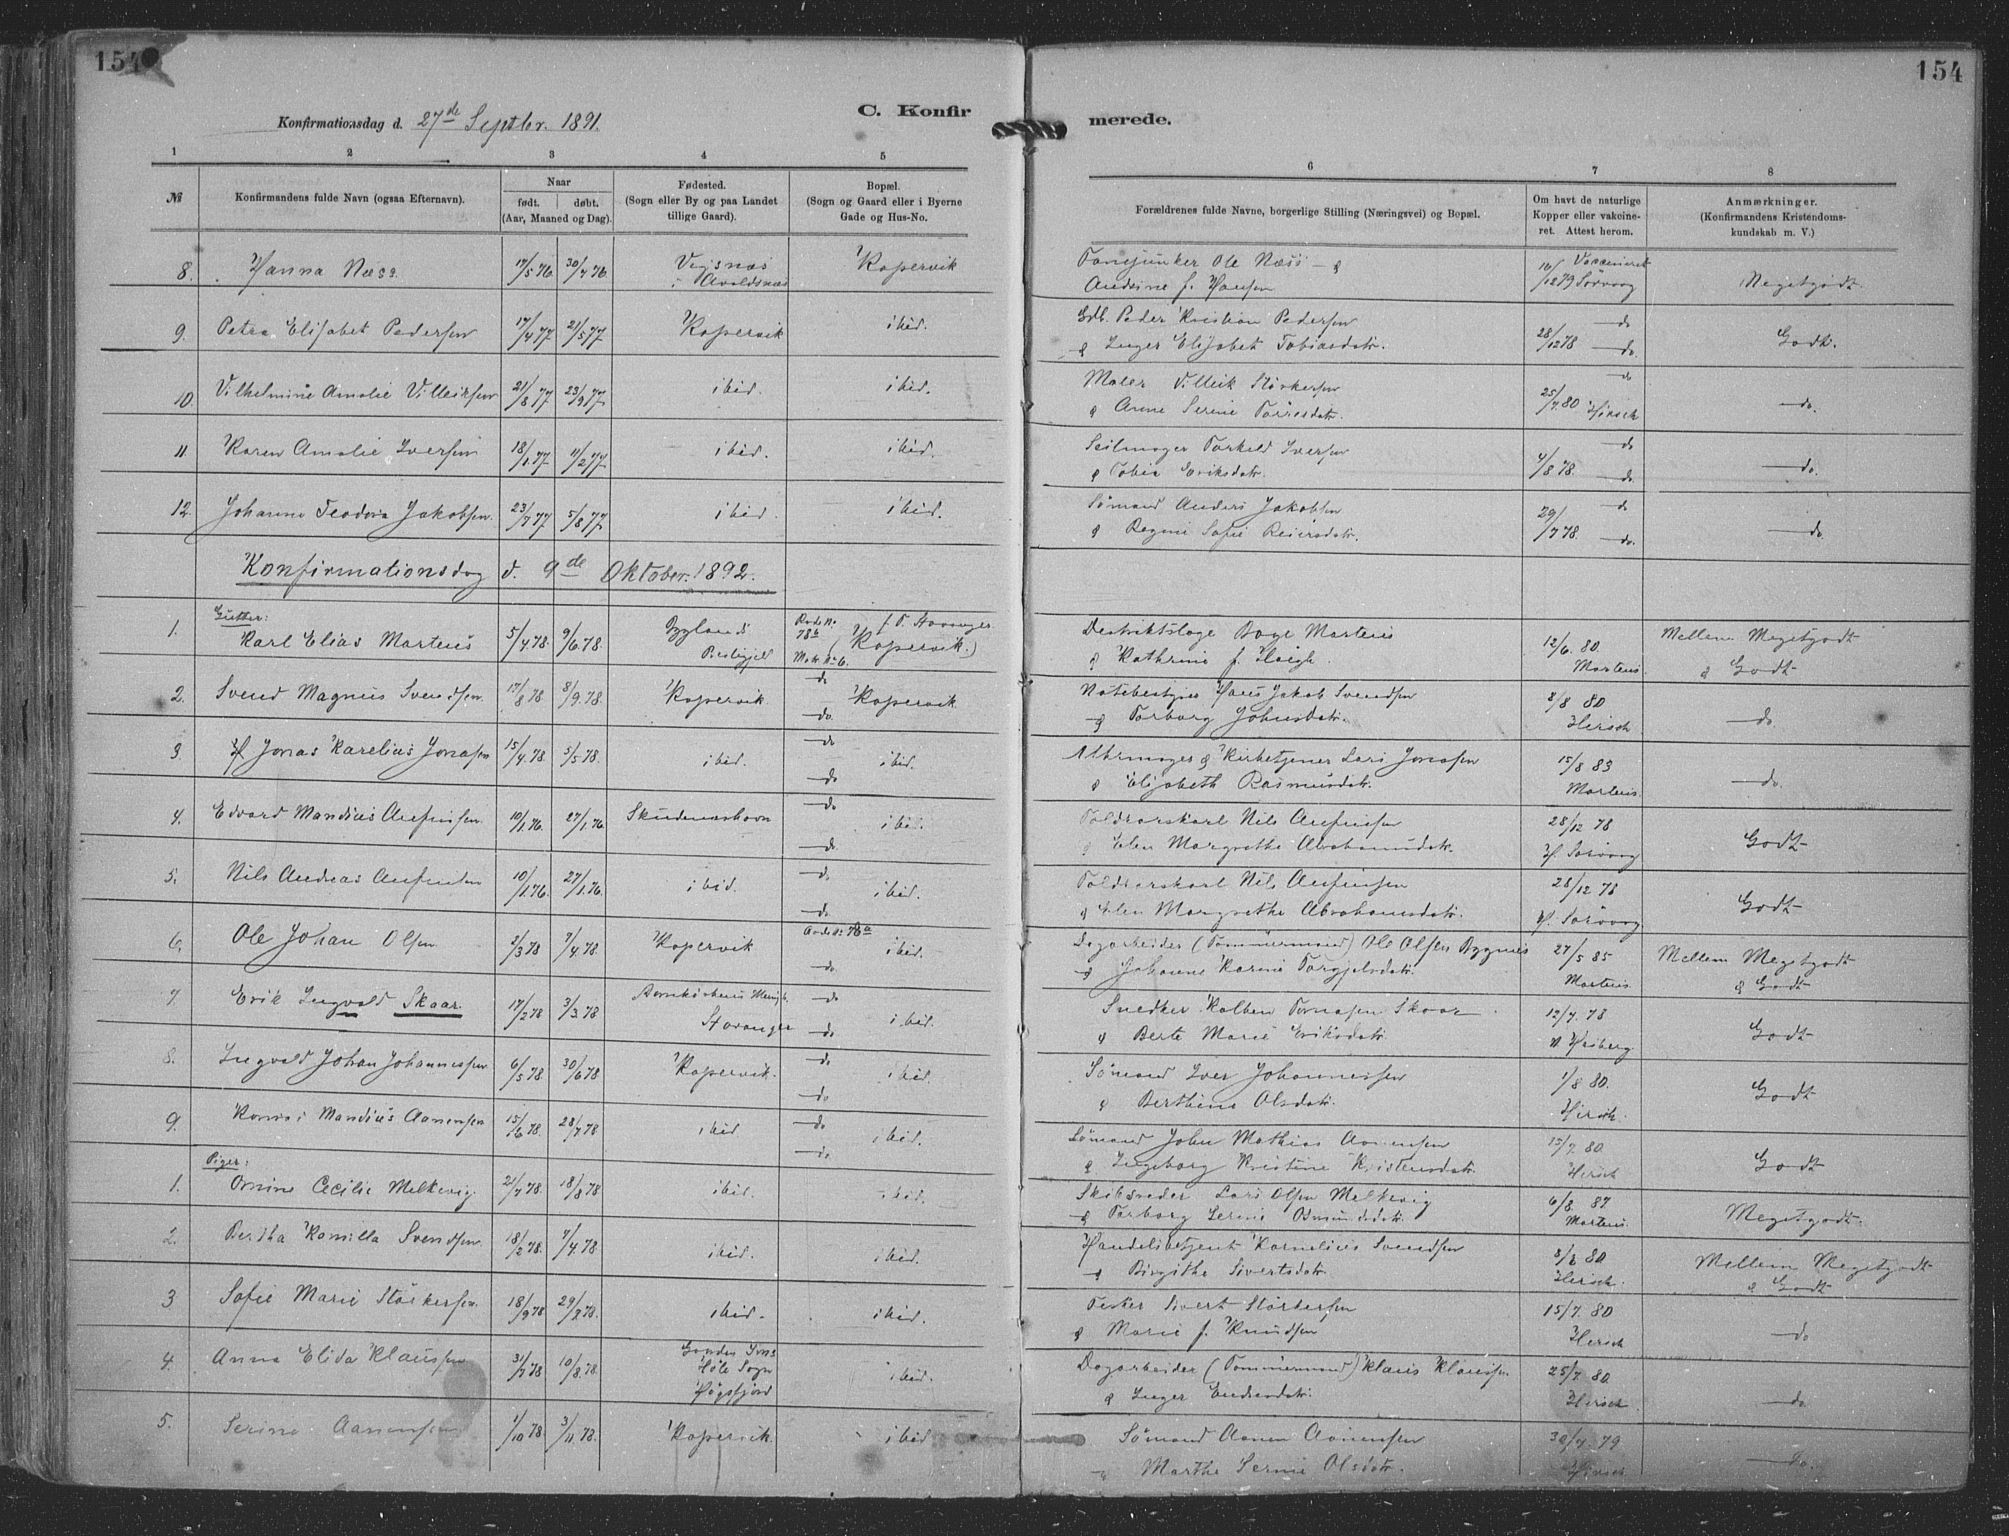 154
154
Konfirmationsdag d. 27de Septbr. 1891.
C. Konfir
merede.
1 2 3 4 5
6 7 8
№ Konfirmandens fulde Navn (ogsaa Efternavn). Naar født. døbt. (Aar, Maaned og Dag). Fødested. (Sogn eller By og paa Landet tillige Gaard). Bopæl. (Sogn og Gaard eller i Byerne Gade og Hus-No.
Forældrenes fulde Navne, borgerlige Stilling (Næringsvei) og Bopæl. Om havt de naturlige Kopper eller vakcineret. Attest herom. Anmærkninger. (Konfirmandens Kristendomskundskab m. V.)
8. Hanna Næss 17/5 76 30/7 76 Vigsnæs i Avaldsnæs Kopervik
Ole Næss & Andrine f. Hansen 16/12 79 Vaccineret Sörvaag Megetgodt
9. Petra Elisabet Pedersen 17/4 77 21/5 77 Kopervik ibid.
Gdb. Peder Kristian Pedersen & Inger Elisabet Tobiasdatr. 28/12 78 do do. Godt.
10. Vilhelmine Amalie Villeiksen 21/8 77 23/9 77 ibid. ibid.
Maler Villeik Störkersen & Anne Serine Torresdatr. 25/7 80 do Hirsch do.
11. Karen Amalie Iversen 18/1 77 11/2 77 ibid. ibid.
Seilmager Torkeld Iversen & Tobia Eriksdatr. 4/8 78 do do. do.
12. Johanne Teodora Jakobsen 23/7 77 5/8 77 ibid. ibid.
Sömand Anders Jakobsen & Ragni Sofie Reiersdatr. 29/7 78. do do. do.
Konfirmationsdag d. 9de Oktober 1892.
Gutter:
1. Karl Elias Martens 5/4 78. 9/6 78. Byglands Prestegjeld 78b Matr. No 6. f. T. Stavanger (Kopervik.)
Destriktslæge Boye Martens & Kathrine f. Heigh. 12/6. 80 Martens Mellem Megetgodt & Godt
2. Svend Magnus Svendsen 17/8 78 8/9 78. Kopervik do do. Kopervik
Notebestyrer Hans Jakob Svendsen & Torborg Johnsdatr. 8/8 80 Hirsch do
3. Jonas Karelius Jonasen 15/4 78. 5/5 78. ibid. do do ibid.
& Kirketjener Lars Jonasen & Elisabeth Rasmusdatr. 15/8 83 Martens. do.
4. Edvard Mandius Anfinsen. 10/1 76. 27/1 76 Skudeneshavn do do. ibid.
Toldrorskarl Nils Anfinsen & Elen Margrethe Abrahamsdatr. 28/12 78 H. Sörvaag Godt
5. Nils Andreas Anfinsen 10/1 76. 27/1 76. ibid. do do ibid.
Toldrorskarl Nils Anfinsen & Elen Margrethe Abrahamsdatr. 28/12 78 H. Sörvaag Godt
6. Ole Johan Olsen 3/3 78 7/4 78. Kopervik 78a do. ibid.
Dagarbeider (Tömmermand) Ole Olsen Bygnes & Johanne Karine Torgjelsdatr. 27/5 85 Martens Mellem Megetgodt & Godt
7. Erik Ingvald Skaar. 17/2 78 3/3 78 Stavanger do do ibid.
Snedker Kolben Tornasen Skaar & Berte Marie Eriksdatr. 12/7. 78 Heiberg Godt
8. Ingvald Johan Johannessen 6/5 78. 30/6 78 Kopervik. do do ibid
Sömand Iver Johannessen & Berthine Olsdatr. 1/8 80. Hirsch. Godt
9. Mandius Aanensen 15/6 78. 28/7 78 ibid do do ibid.
Sömand John Mathias Aanensen & Ingeborg Kristine Kristensdatr. 15/7. 80 Hirsch Godt
Piger:
1. Ornine Cecilie Melkevig. 21/7 78. 18/8 78 ibid. ibid.
Skibsreder Lars Olsen Melkevig & Torborg Serine Osmundsdatr. 6/8. 87 Martens. Megetgodt.
2. Bertha Kamilla Svendsen. 18/2 78. 7/4 78. ibid. ibid.
Handelsbetjent Kornelius Svendsen & Birgithe Sivertsdatr. 8/8 80 Hirsch. Mellem Megetgodt & Godt
3 Sofie Marie Störkersen. 18/9 78 29/9 78. ibid. ibid.
Fisker Sivert Störkersen & Marie f. Knudsen 15/7. 80 Hirsch do
4. Anna Elida Klausen 31/7 78 10/8 78. Höle Sogn Högsfjord ibid.
Dagarbeider (Tömmermand) Klaus Klausen & Inger Endresdatr. 25/7. 80 Hirsch. do
5. Serine Aanensen 1/10 78 3/11 78. Kopervik. ibid
Sömand Aanen Aanensen & Marthe Serine Olsdatr. 30/7 79 Hirsch do.